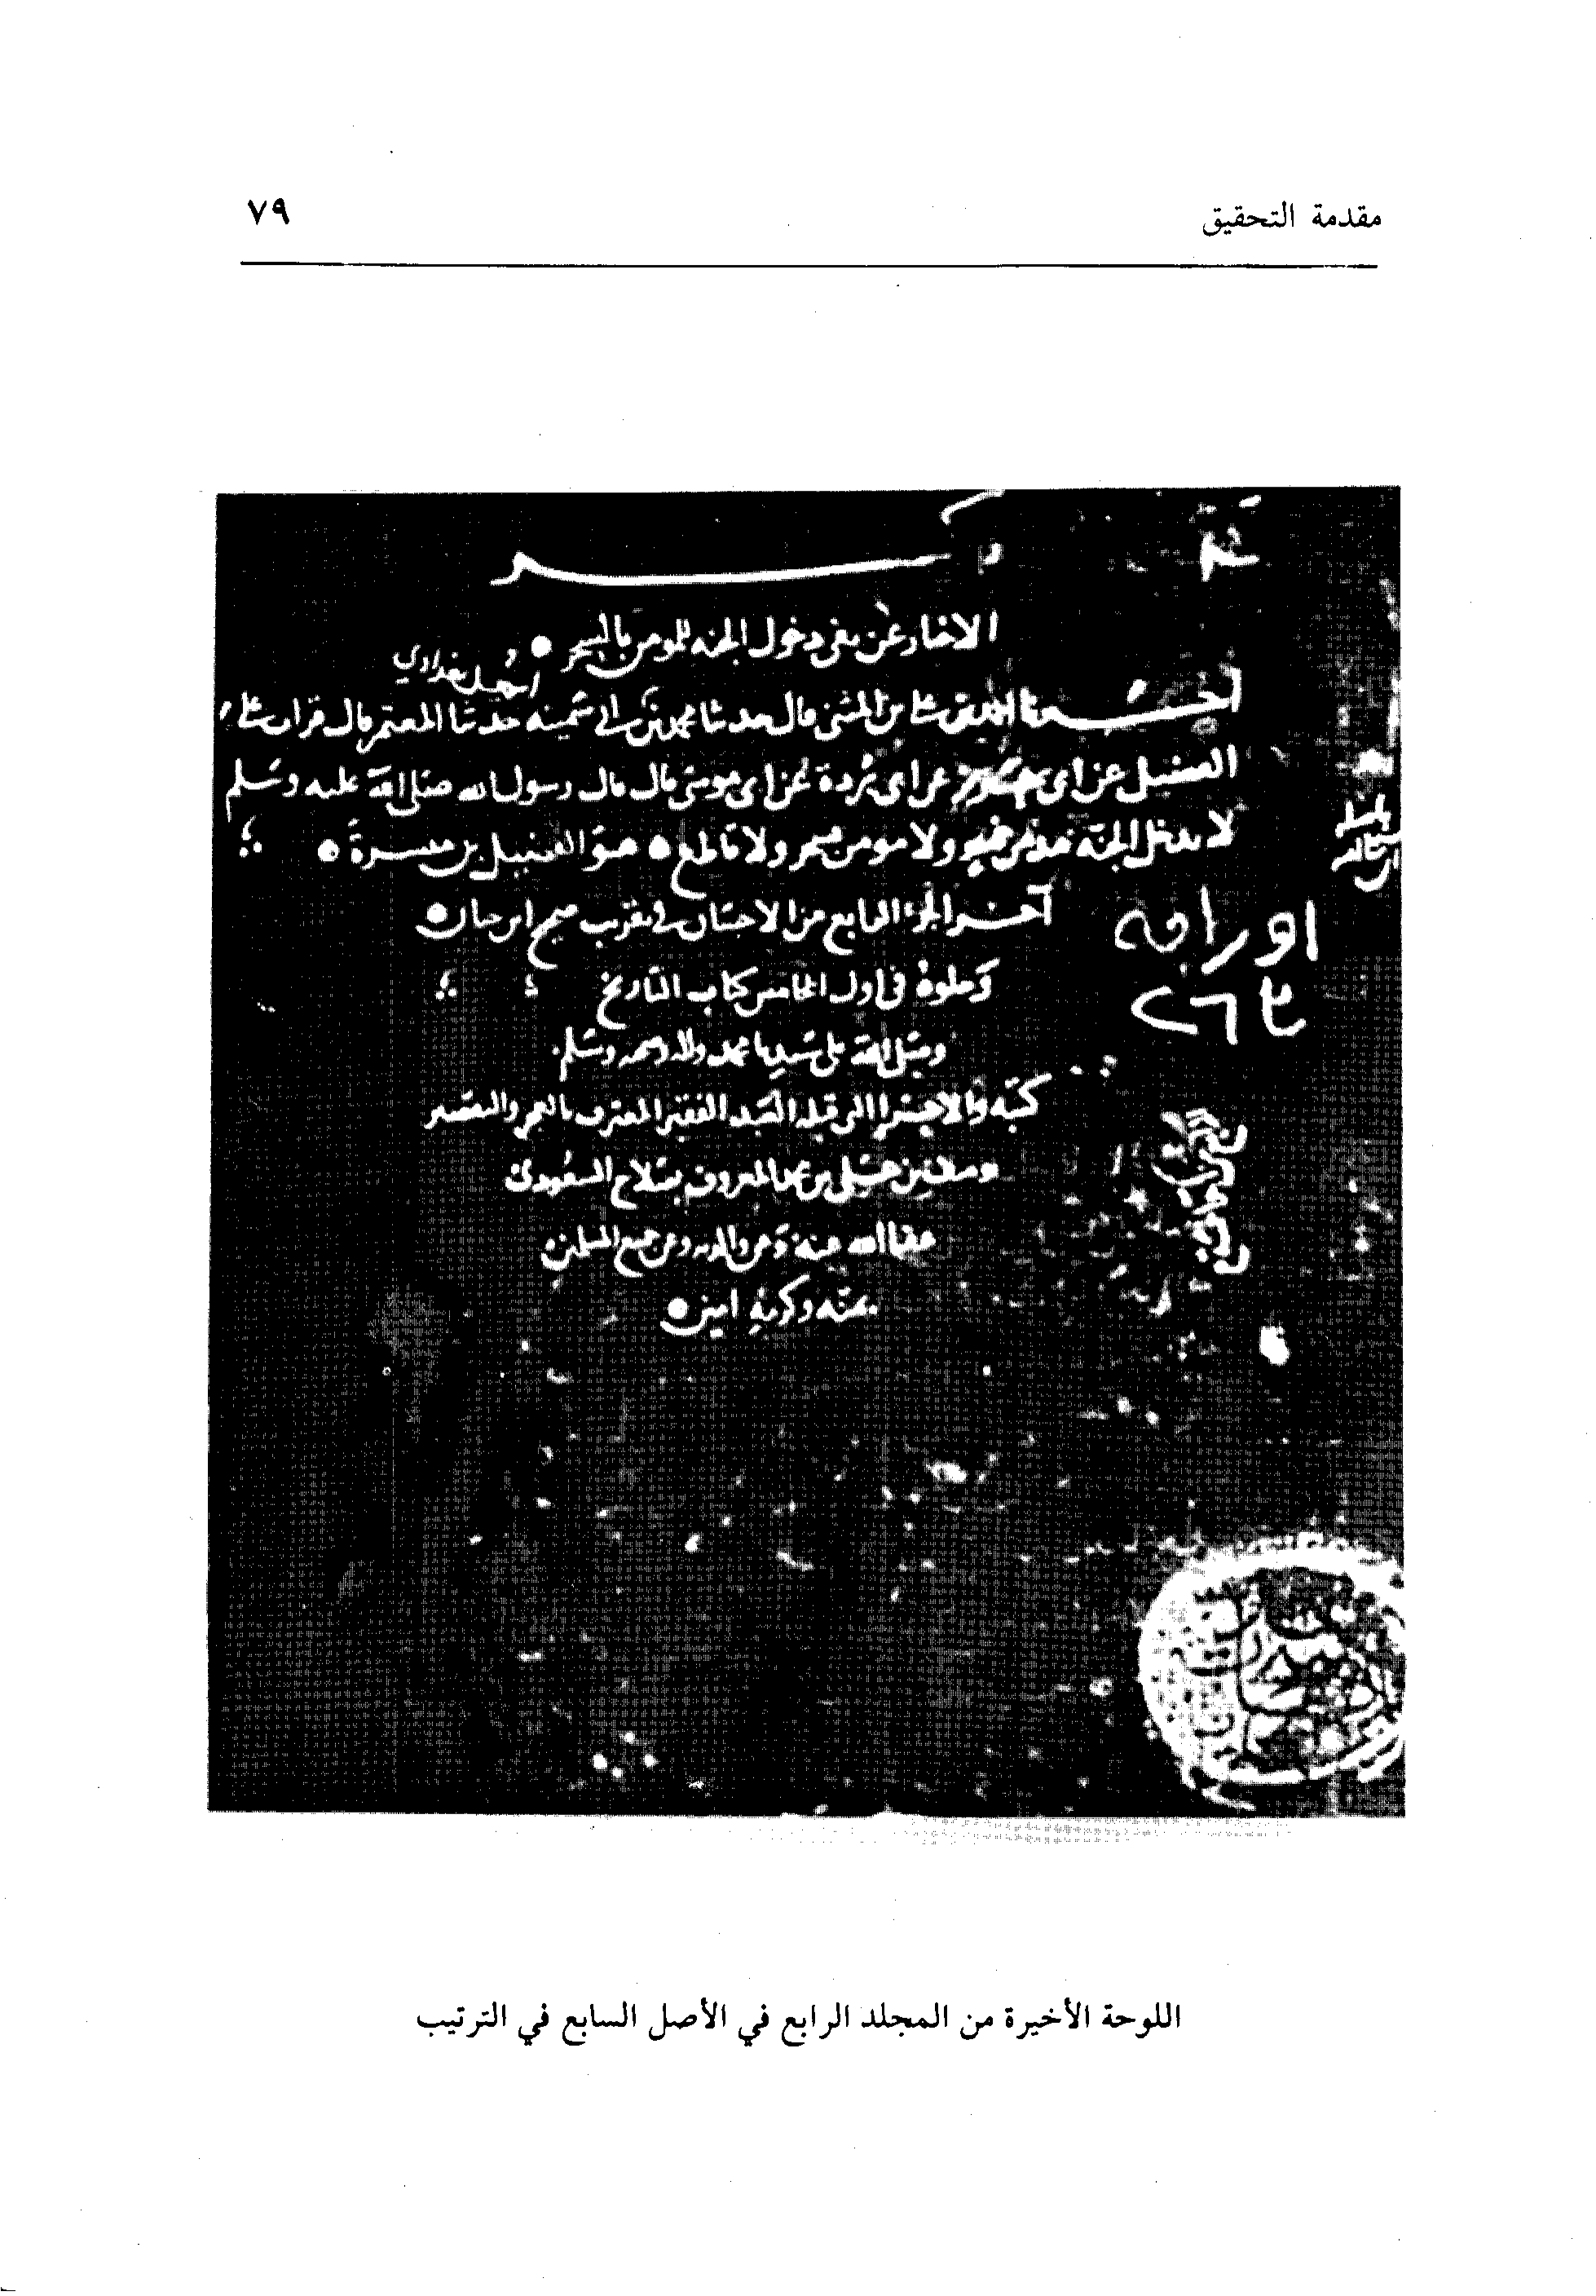 مقدمة التحقيق
٧٩
ذكر
الاخبار عن نفي دخول الجنه للمومن بالسحر
اصل بغدادي
اخبرنا بن المثنى قال حدثنا محمد بن ابي سمينه حدثنا المعتمر قال قرات على
الفضيل عن ابي عن ابي بردة عن ابي موسى قال قال رسول الله صلى الله عليه وسلم
لا يدخل الجنة ولا مومن بسحر ولا قاطع هو الفضيل بن ميسرة
آخر الجزء الرابع من الاحسان في تقريب صحيح ابن حبان
يتلوه في اول الخامس كتاب التاريخ
وصلى الله على سيدنا محمد واله وصحبه وسلم
كتبه والاجزاء التي قبله العبد الفقير المعترف بالعجز والتقصير
المعروف
عفا الله عنه وعن والديه وعن جميع المسلمين
بمنه وكرمه امين
اوراقه
اللوحة الأخيرة من المجلد الرابع في الأصل السابع في الترتيب